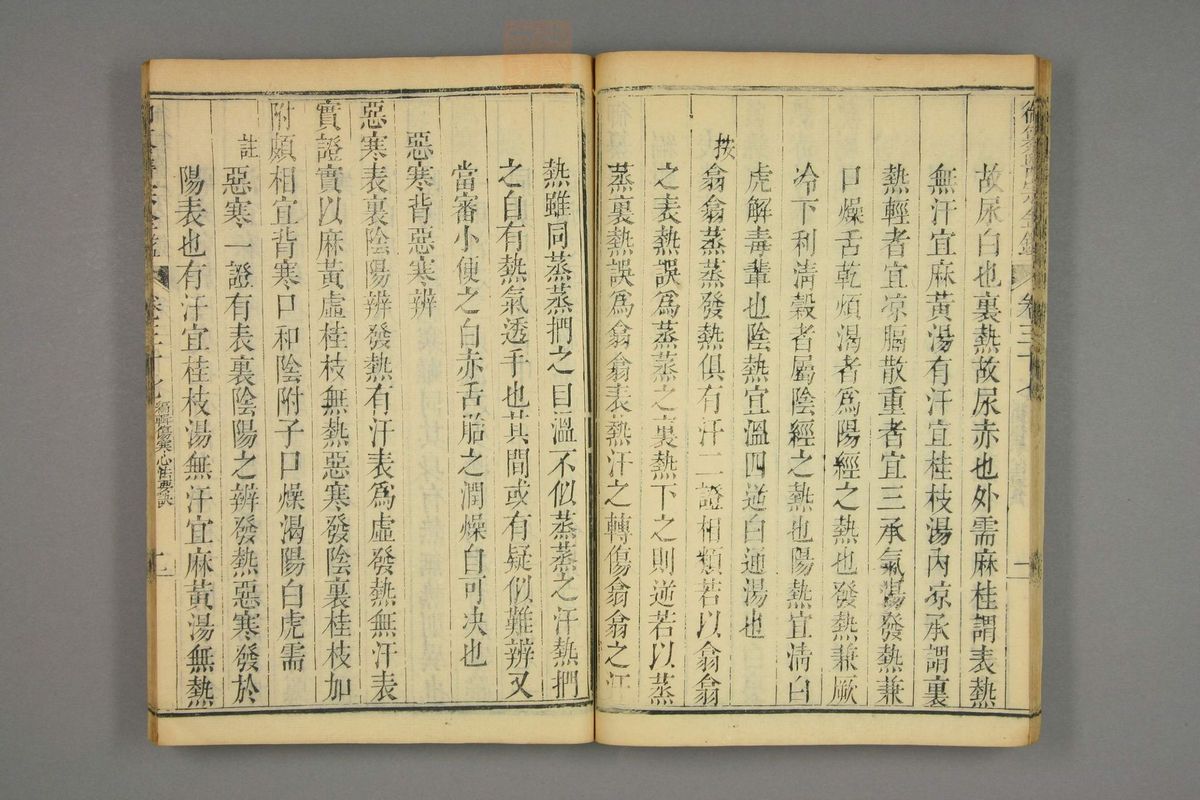 故尿白也裏熱故尿赤也外需麻桂謂表熱
無汗宜麻黃湯有汗宜桂枝湯內凉承謂裏
熱輕者宜凉膈散重者宜三承氣湯發熱兼
口燥舌乾煩渴者爲陽經之熱也發熱兼厥
冷下利清穀者屬陰經之熱也陽熱宜清白
虎解毒輩也陰熱宜溫四逆白通湯也
按翕翕蒸蒸發熱俱有汗二證相類若以翕翕
之表熱誤爲蒸蒸之裏熱下之則逆若以蒸
蒸裏熱誤爲翕翕表熱汗之轉傷翕翕之汗
熱雖同蒸蒸捫之曰溫不似蒸蒸之汗熱捫
之自有熱氣透手也其間或有疑似難辨又
當審小便之白赤舌胎之潤燥自可决也
惡寒背惡寒辨
惡寒表裏陰陽辨發熱有汗表爲虛發熱無汗表
實證實以麻黃虛桂枝無熱惡寒發陰裏桂枝加
附頗相宜背寒口和陰附子口燥渴陽白虎需
註惡寒一證有表裏陰陽之辨發熱惡寒發於
陽表也有汗宜桂枝湯無汗宜麻黃湯無熱
卷三十七
編輯傷寒心法要訣